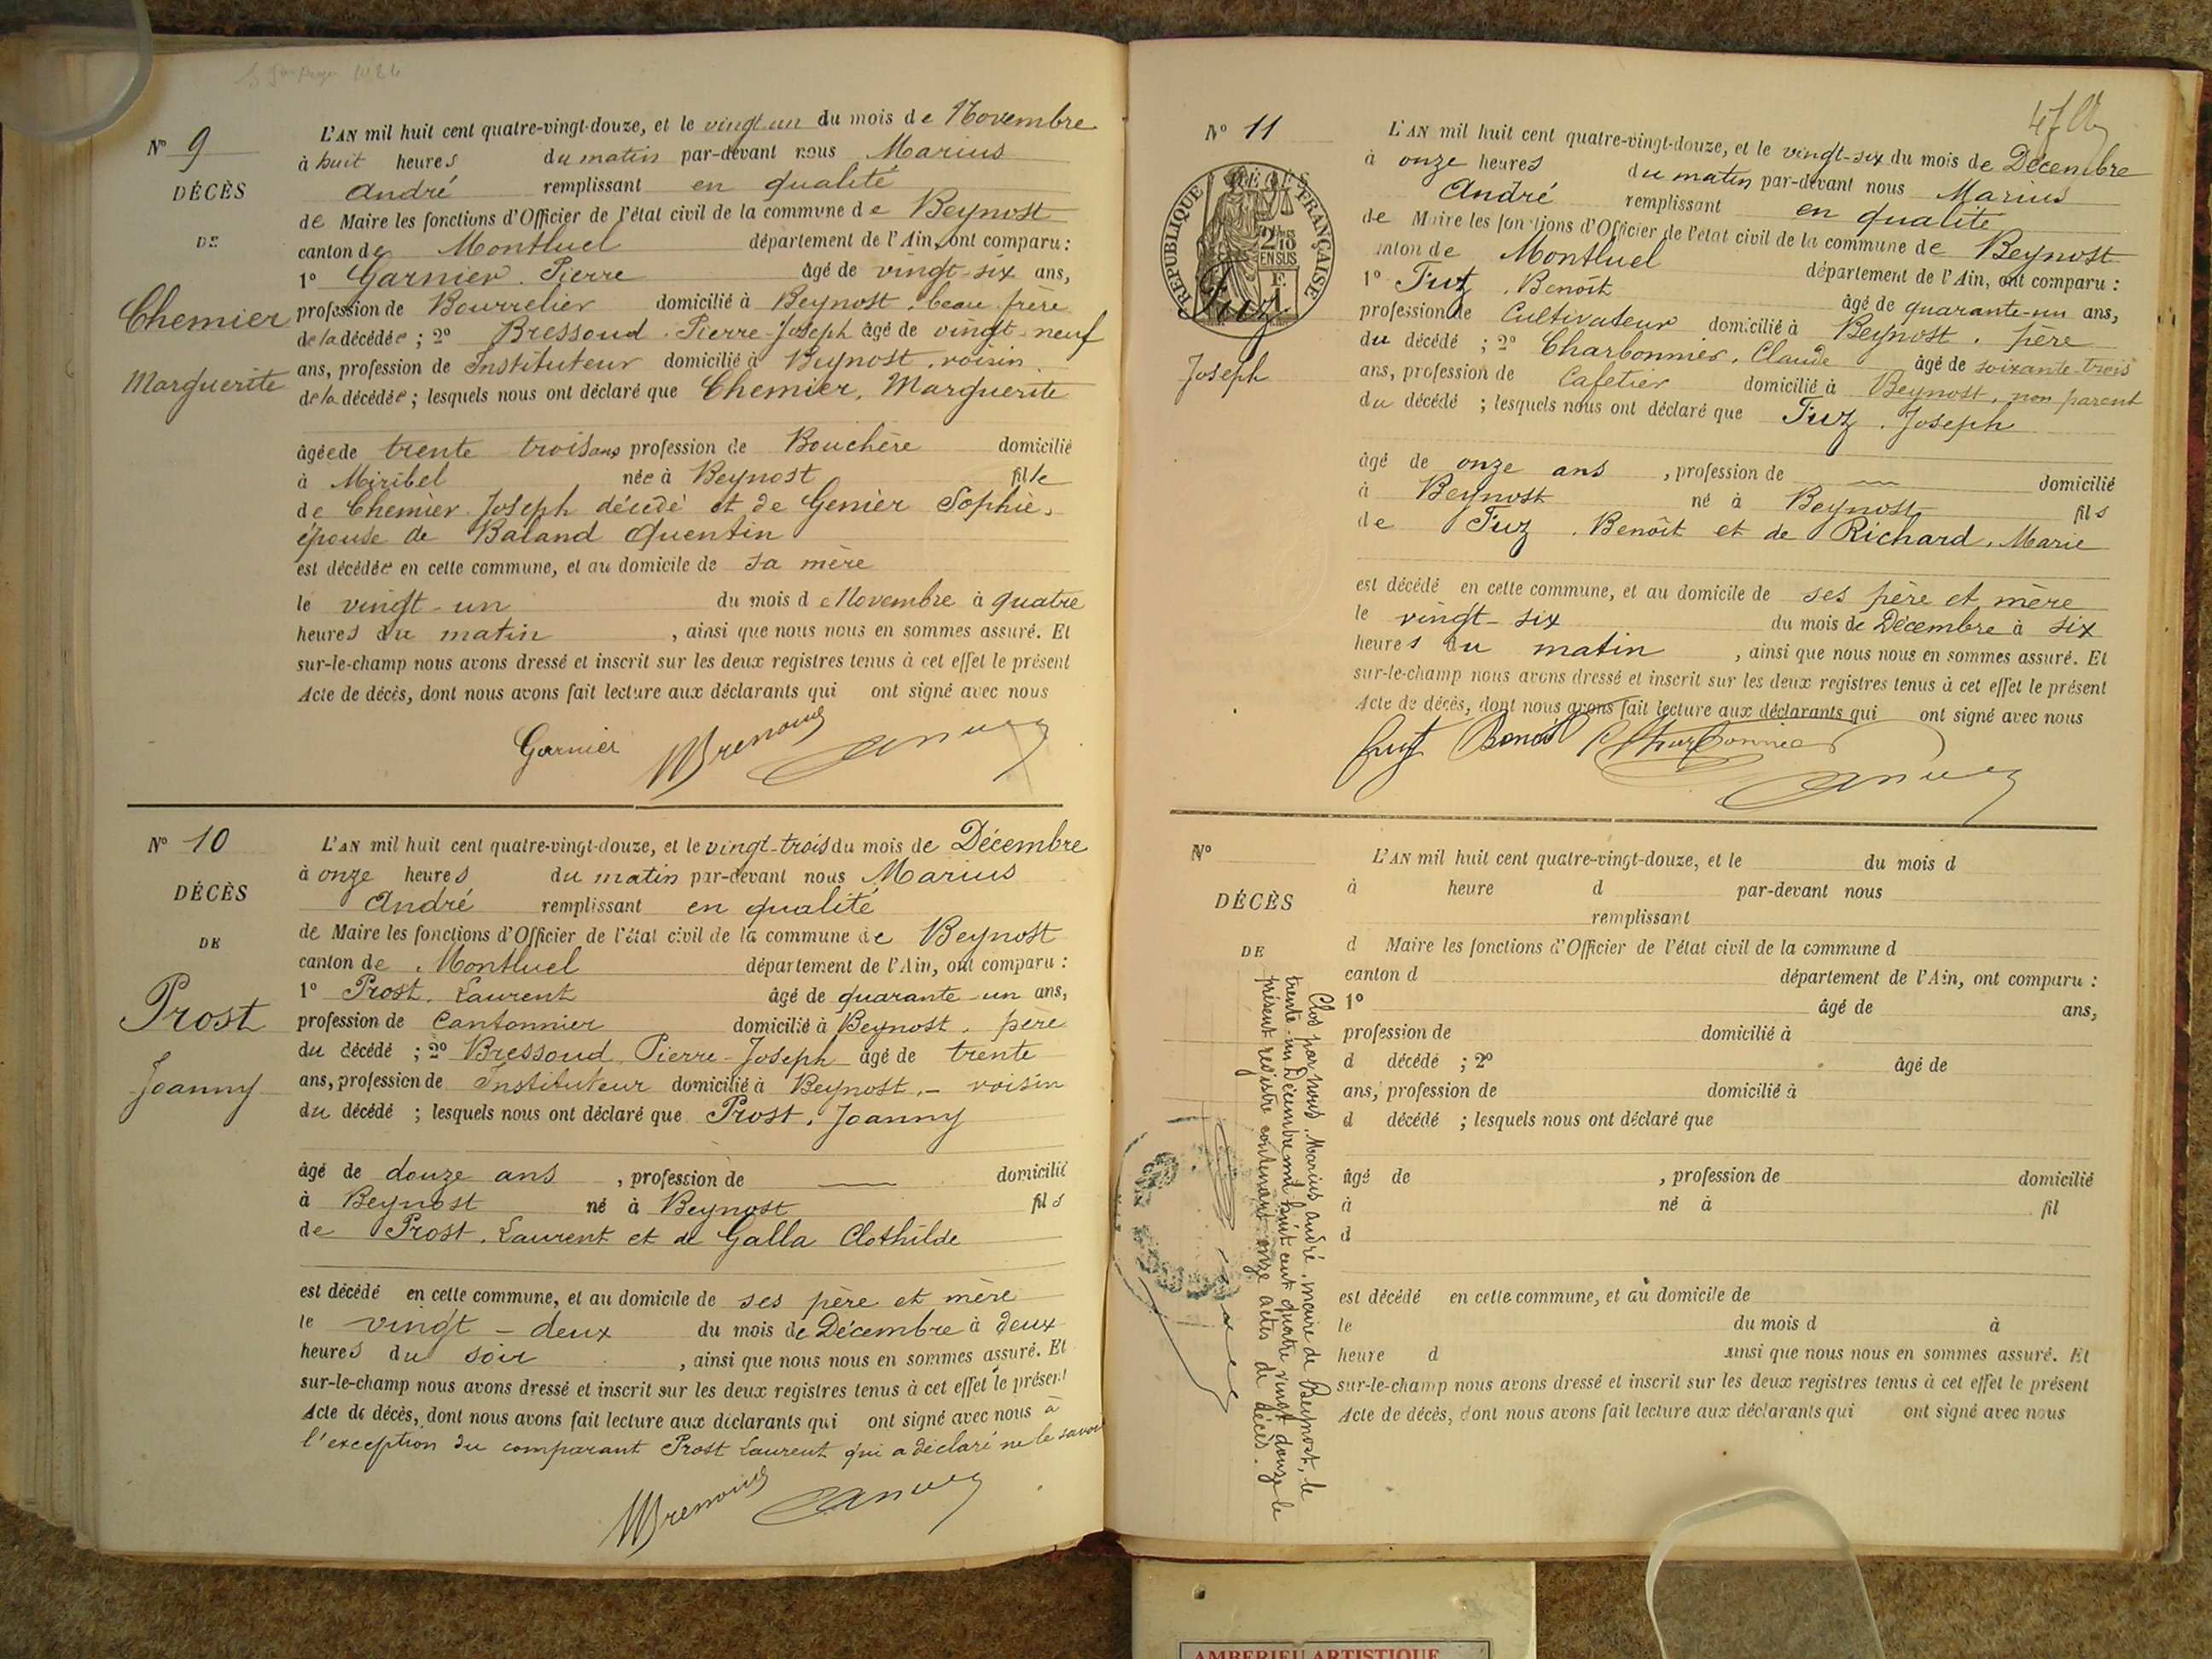 Nº 9
DÉCÈS
DE
Chemier
Marguerite
L'AN mil huit cent quatre-vingt-douze, et le vingt un du mois de Novembre
à huit heures du matin par-devant nous Marius
André remplissant en qualité
de Maire les fonctions d'Officier de l'état civil de la commune de Beynost
canton de Montluel département de l'Ain, ont comparu :
1º Garnier. Pierre âgé de vingt-six ans,
profession de Bourrelier domicilié à Beynost, beau frère
de la décédée ; 2º Bressoud. Pierre-Joseph âgé de vingt-neuf
ans, profession de Instituteur domicilié à Beynost, voisin
de la décédée ; lesquels nous ont déclaré que Chemier, Marguerite
âgée de trente trois ans profession de Bouchère domicilié
à Miribel née à Beynost fille
de Chemier Joseph décédé et de Genier Sophie,
épouse de Baland Quentin
est décédée en cette commune, et au domicile de sa mère
le vingt-un du mois de Novembre à quatre
heures du matin , ainsi que nous nous en sommes assuré. Et
sur-le-champ nous avons dressé et inscrit sur les deux registres tenus à cet effet le présent
Acte de décès, dont nous avons fait lecture aux déclarants qui ont signé avec nous
Garnier
Nº 10
DÉCÈS
DE
Prost
Joanny
L'AN mil huit cent quatre-vingt-douze, et le vingt-trois du mois de Décembre
à onze heures du matin par-devant nous Marius
André remplissant en qualité
de Maire les fonctions d'Officier de l'état civil de la commune de Beynost
canton de Montluel département de l'Ain, ont comparu :
1º Prost. Laurent âgé de quarante-un ans,
profession de Cantonnier domicilié à Beynost, père
du décédé ; 2º Bressoud, Pierre-Joseph âgé de trente
ans, profession de Instituteur domicilié à Beynost, - voisin
du décédé ; lesquels nous ont déclaré que Prost, Joanny
âgé de douze ans , profession de domicilié
à Beynost né à Beynost fils
de Prost. Laurent et de Galla Clothilde
est décédé en cette commune, et au domicile de ses père et mère
le vingt-deux du mois de Décembre à deux
heures du soir , ainsi que nous nous en sommes assuré. Et
sur-le-champ nous avons dressé et inscrit sur les deux registres tenus à cet effet le présent
Acte de décès, dont nous avons fait lecture aux déclarants qui ont signé avec nous à
l'exception du comparant Prost Laurent qui a déclaré ne le savoir
Nº 11
DÉCÈS
RÉPUBLIQUE FRANÇAISE
2/10
EN SUS
Fuz
Joseph
L'AN mil huit cent quatre-vingt-douze, et le vingt-six du mois de Décembre
à onze heures du matin par-devant nous Marius
André remplissant en qualité
de Maire les fonctions d'Officier de l'état civil de la commune de Beynost
canton de Montluel département de l'Ain, ont comparu :
1º Fuz. Benoît âgé de quarante-un ans,
profession de Cultivateur domicilié à Beynost, père
du décédé ; 2º Charbonnier, Claude âgé de soixante-trois
ans, profession de Cafetier domicilié à Beynost, non parent
du décédé ; lesquels nous ont déclaré que Fuz. Joseph
âgé de onze ans , profession de domicilié
à Beynost né à Beynost fils
de Fuz. Benoît et de Richard, Marie
est décédé en cette commune, et au domicile de ses père et mère
le vingt-six du mois de Décembre à six
heures du matin , ainsi que nous nous en sommes assuré. Et
sur-le-champ nous avons dressé et inscrit sur les deux registres tenus à cet effet le présent
Acte de décès, dont nous avons fait lecture aux déclarants qui ont signé avec nous
Fuz Benoît Charbonnier
Nº
DÉCÈS
DE
L'AN mil huit cent quatre-vingt-douze, et le du mois d
à heure d par-devant nous
remplissant
d Maire les fonctions d'Officier de l'état civil de la commune d
canton d département de l'Ain, ont comparu :
1º âgé de ans,
profession de domicilié à
d décédé ; 2º âgé de
ans, profession de domicilié à
d décédé ; lesquels nous ont déclaré que
âgé de , profession de domicilié
à né à fil
d
est décédé en cette commune, et au domicile de
le du mois d à
heure d ainsi que nous nous en sommes assuré. Et
sur-le-champ nous avons dressé et inscrit sur les deux registres tenus à cet effet le présent
Acte de décès, dont nous avons fait lecture aux déclarants qui ont signé avec nous
Clos par nous, Marius André, maire de Beynost, le
trente-un Décembre mil huit cent quatre vingt douze le
présent registre contenant onze actes de décès.
AMBERIEU ARTISTIQUE